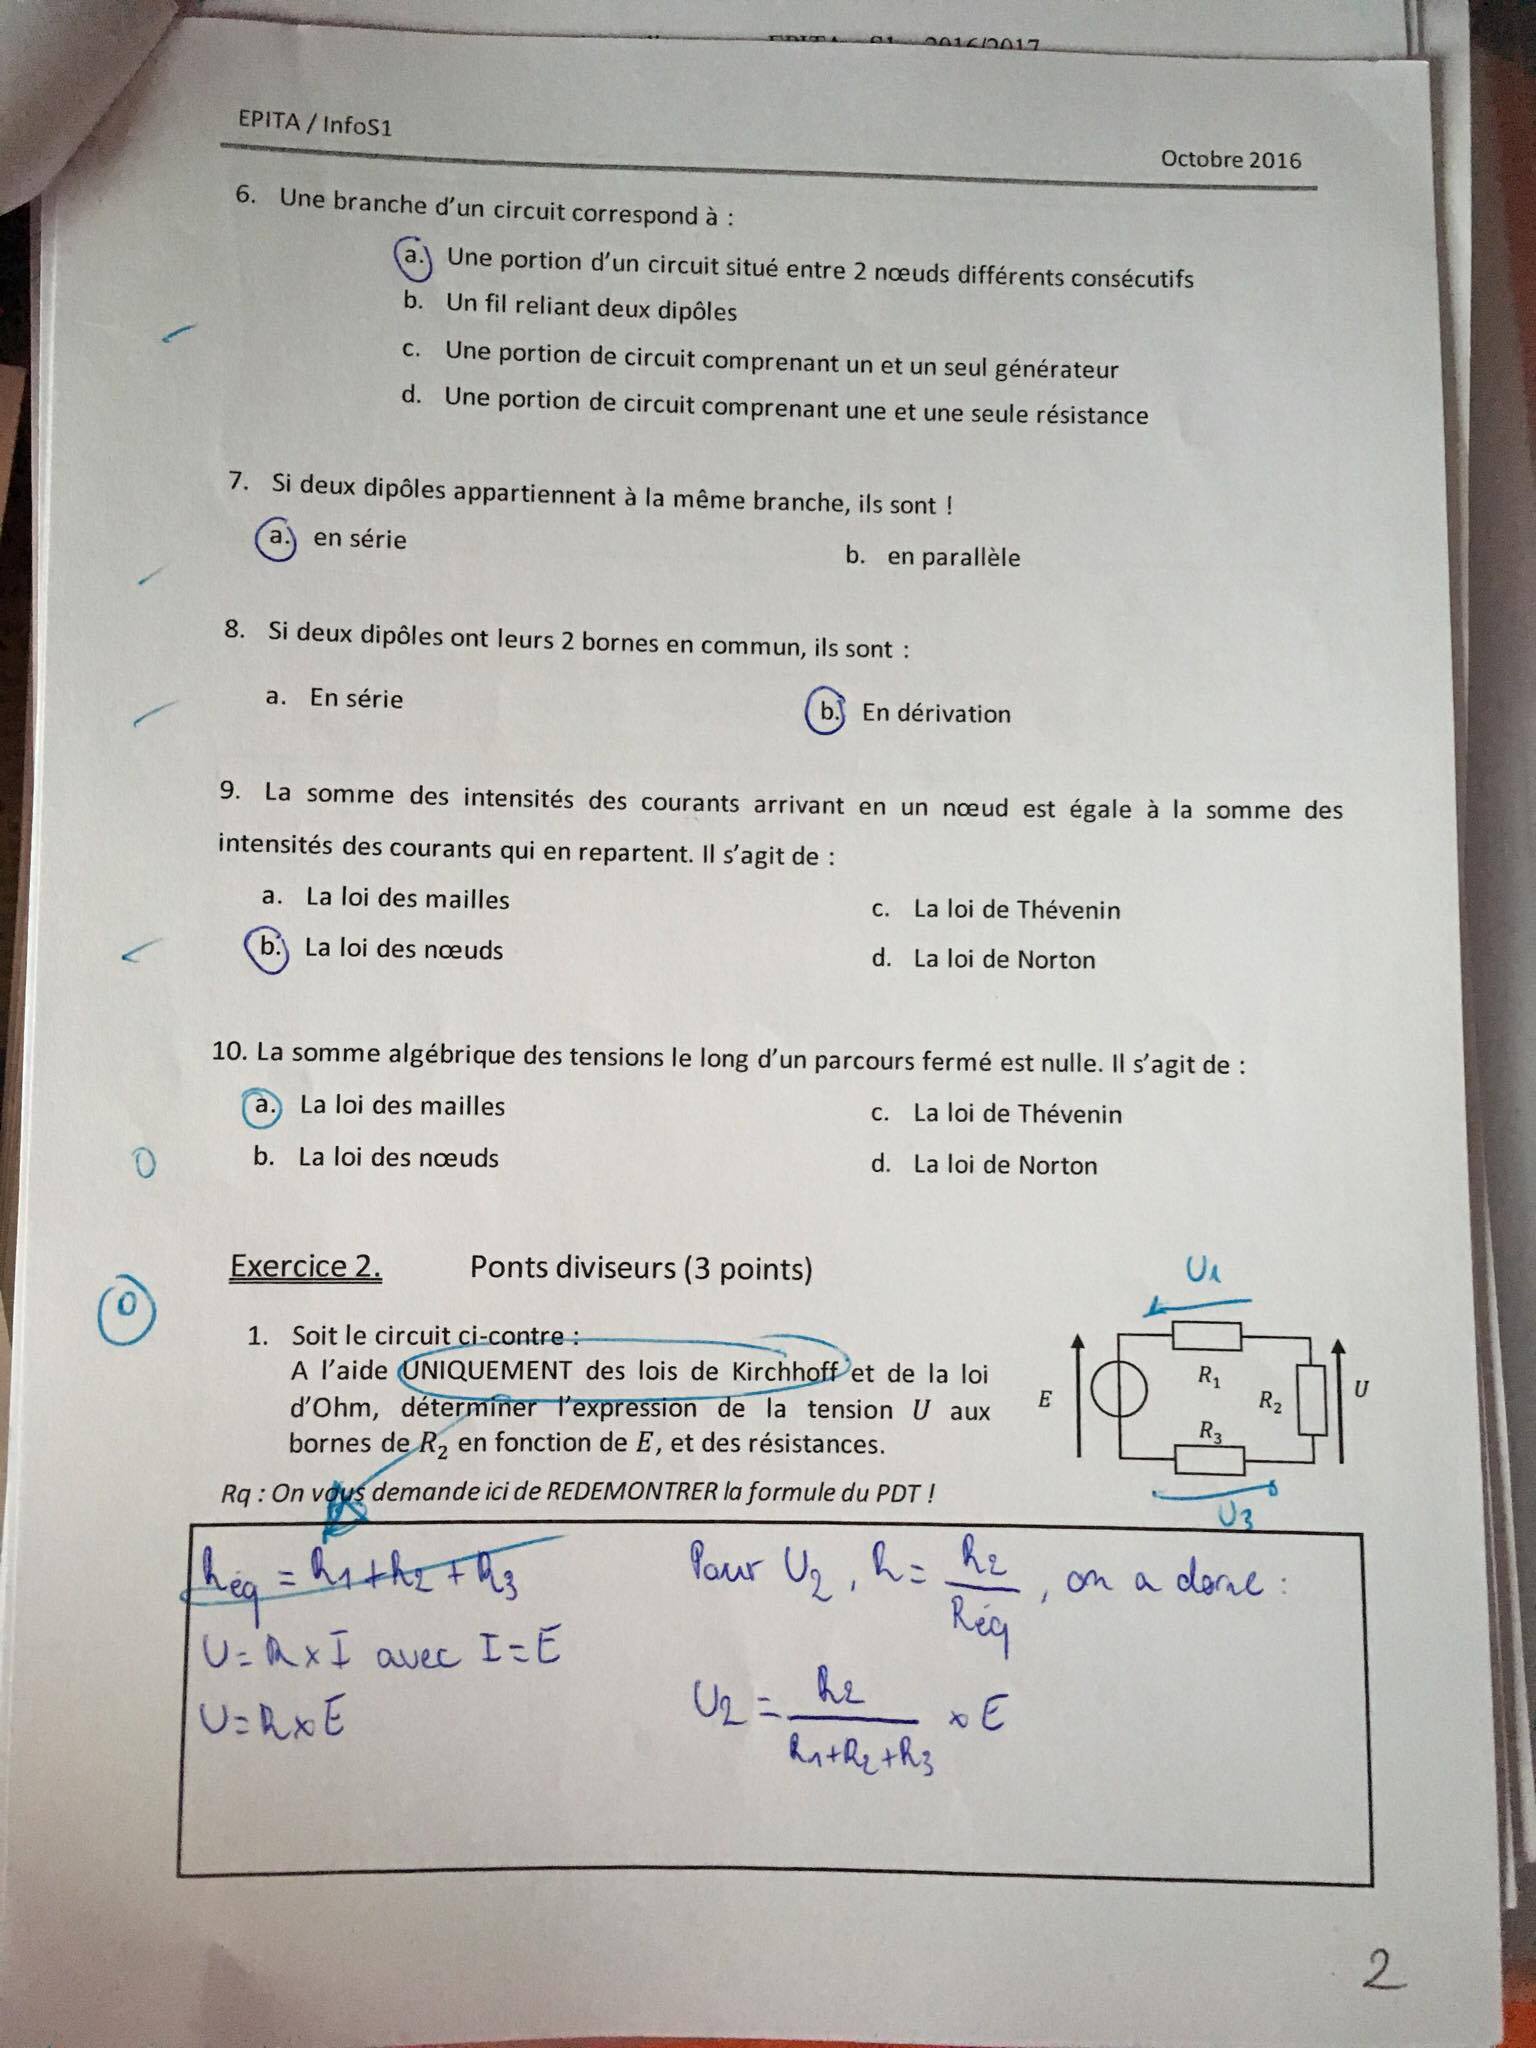 EPITA S1 2016/2017
EPITA / InfoS1
Octobre 2016
6. Une branche d'un circuit correspond à :
a. Une portion d'un circuit situé entre 2 nœuds différents consécutifs
b. Un fil reliant deux dipôles
c. Une portion de circuit comprenant un et un seul générateur
d. Une portion de circuit comprenant une et une seule résistance
7. Si deux dipôles appartiennent à la même branche, ils sont !
a. en série
b. en parallèle
8. Si deux dipôles ont leurs 2 bornes en commun, ils sont :
a. En série
b. En dérivation
9. La somme des intensités des courants arrivant en un nœud est égale à la somme des
intensités des courants qui en repartent. Il s'agit de :
a. La loi des mailles
c. La loi de Thévenin
b. La loi des nœuds
d. La loi de Norton
10. La somme algébrique des tensions le long d'un parcours fermé est nulle. Il s'agit de :
a. La loi des mailles
c. La loi de Thévenin
0
b. La loi des nœuds
d. La loi de Norton
Exercice 2. Ponts diviseurs (3 points)
0
1. Soit le circuit ci-contre :
A l'aide UNIQUEMENT des lois de Kirchhoff et de la loi
d'Ohm, déterminer l'expression de la tension U aux
bornes de R2 en fonction de E, et des résistances.
Rq : On vous demande ici de REDEMONTRER la formule du PDT !
U1
R1
E
R2
U
R3
U3
Réq = R1 + R2 + R3
U = R x I avec I = E
U = R x E
Pour U2, R = R2 / Réq, on a donc :
U2 = R2 / R1+R2+R3 x E
2